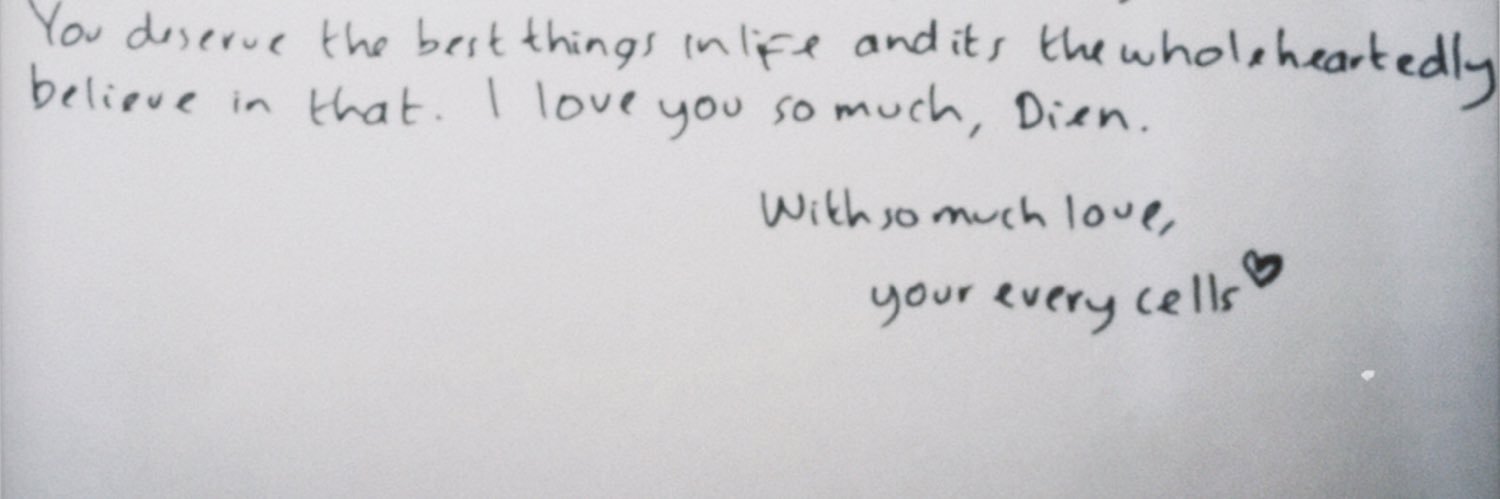 You deserve the best things in life and its the wholeheartedly
believe in that. I love you so much, Dien.
With so much love,
your every cells